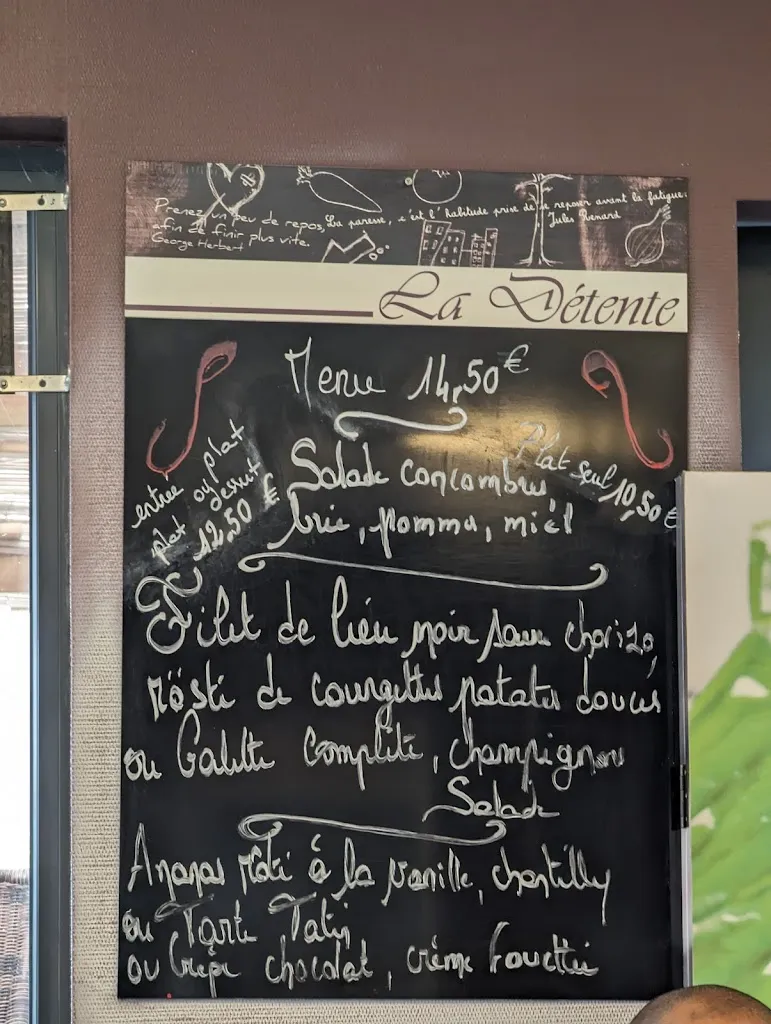 Prenez un peu de repos,
afin de finir plus vite.
George Herbert
La paresse, c'est l'habitude prise de se reposer avant la fatigue.
Jules Renard
La Détente
Menu 14,50 €
entrée ou plat
plat dessert
12,50 €
Plat seul 10,50 €
Salade concombres
brie, pomme, miel
Filet de lieu noir sauce chorizo,
rösti de courgettes patates douces
ou Galette complète, champignons
Salade
Ananas rôti à la vanille, chantilly
ou Tarte Tatin
ou Crêpe chocolat, crème fouettée